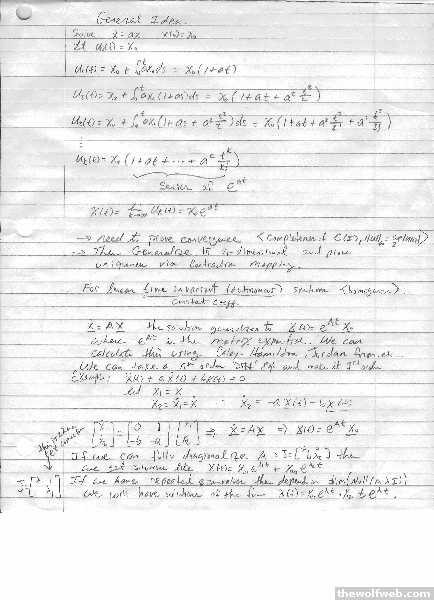 General Idea
Solve ẋ = ax x(0) = x₀
Let u₀(t) = x₀
u₁(t) = x₀ + ∫₀ᵗ ax₀ ds = x₀(1 + at)
u₂(t) = x₀ + ∫₀ᵗ ax₀(1 + as) ds = x₀(1 + at + a² t²/2)
u₃(t) = x₀ + ∫₀ᵗ ax₀(1 + as + a² s²/2) ds = x₀(1 + at + a² t²/2! + a³ t³/3!)
⋮
uₖ(t) = x₀(1 + at + ⋯ + aᵏ tᵏ/k!)
Series of eᵃᵗ
x(t) = lim uₖ(t) = x₀eᵃᵗ
→ need to prove convergence (completeness of C(I),
→ Then Generalize to n-dimensional and prove
uniqueness via contraction mapping.
For linear time invariant (autonomous) systems (homogeneous)
constant coeff.
Ẋ = AX the solution generalizes to X(t) = eᴬᵗ X₀
where eᴬᵗ is the matrix exponential. We can
calculate this using Cayley-Hamilton, Jordan form, etc.
We can take a nth order Diff Eq and make it 1st order
Example: ẍ(t) + aẋ(t) + bx(t) = 0
let x₁ = x
x₂ = ẋ₁ = ẋ ∴ ẋ₂ = -aẋ(t) - bx(t)
[ẋ₁ ẋ₂] = [0 1 -b -a] [x₁ x₂] ⇒ Ẋ = AX ⇒ X(t) = eᴬᵗ X₀
If we can fully diagonalize A = J = then
we get solution like x(t) = x₀₁e^λt + x₀₂e^λt
If we have repeated eigenvalues then depending on dim(Null(A-λI))
we will have solutions of the form x(t) = x₀e^λt + x₀te^λt.
thewolfweb.com